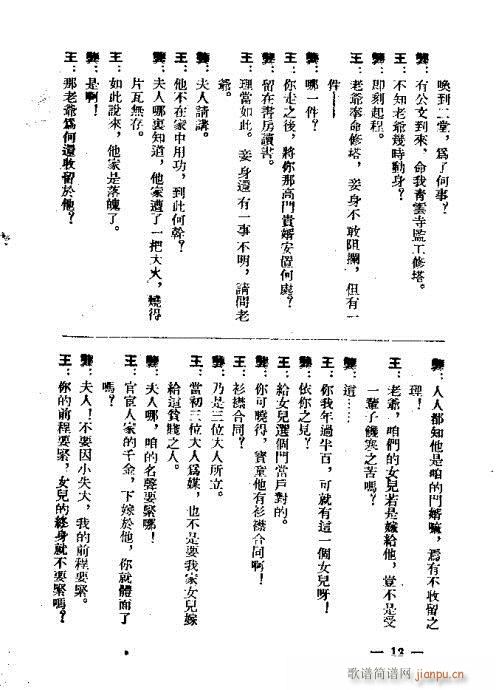 喚到二堂，爲了何事？
龔：有公文到來，命我靑雲寺監工修塔。
王：不知老爺幾時動身？
龔：即刻起程。
王：老爺奉命修塔，妾身不敢阻攔，但有一
件——
龔：哪一件？
王：你走之後，將你那高門貴婿安置何處？
龔：留在書房讀書。
王：理當如此。妾身還有一事不明，請問老
爺。
龔：夫人請講。
王：他不在家中用功，到此何幹？
龔：夫人哪裏知道，他家遭了一把大火，燒得
片瓦無存。
王：如此說來，他家是落魄了。
龔：是啊！
王：那老爺爲何還收留於他？
龔：人人都知他是咱的門婿嘛，焉有不收留之
理！
王：老爺，咱們的女兒若是嫁給他，豈不是受
一輩子饑寒之苦嗎？
龔：這……
王：你我年過半百，可就有這一個女兒呀！
龔：依你之見？
王：給女兒選個門當戶對的。
龔：你可曉得，實棄他有衫襟合同啊！
王：衫襟合同？
龔：乃是三位大人所立。
王：當初三位大人爲媒，也不是要我家女兒嫁
給這貧賤之人。
龔：夫人哪，咱的名聲要緊哪！
王：官宦人家的千金，下嫁於他，你就體面了
嗎？
龔：夫人！不要因小失大，我的前程要緊。
王：你的前程要緊，女兒的終身就不要緊嗎？
— 12 —
歌谱简谱网
jianpu.cn